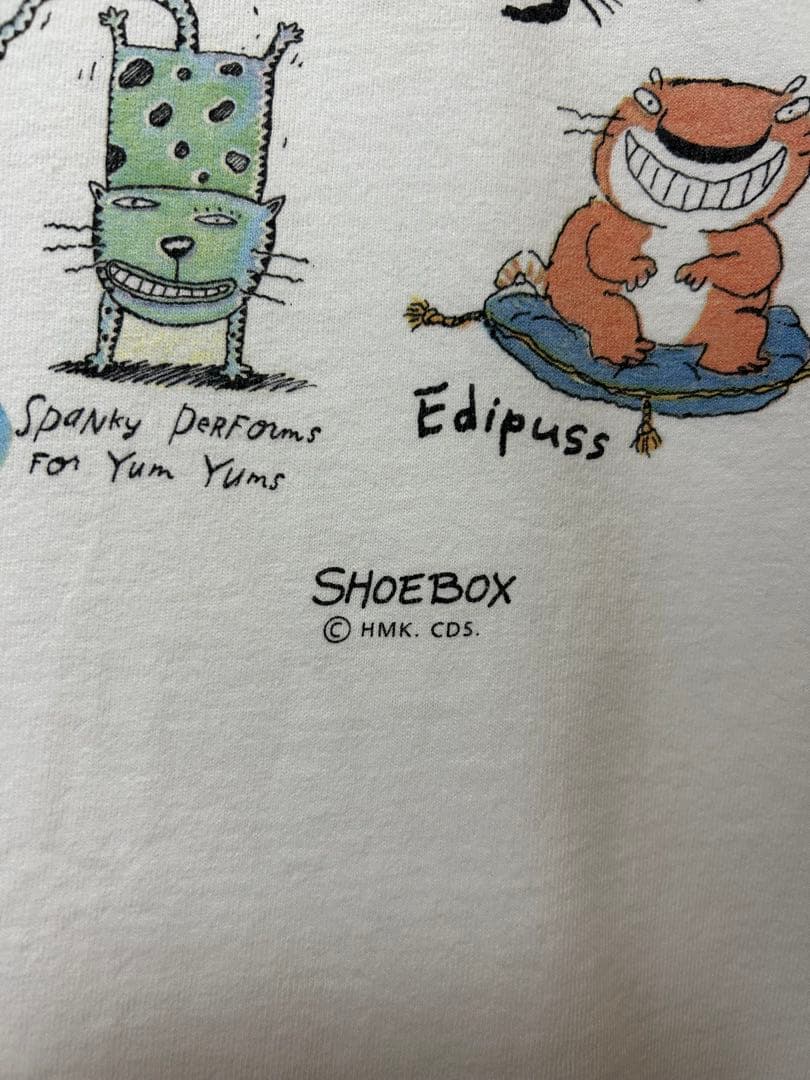 Spanky Performs
For Yum Yums
Edipuss
SHOEBOX
© HMK. CDS.